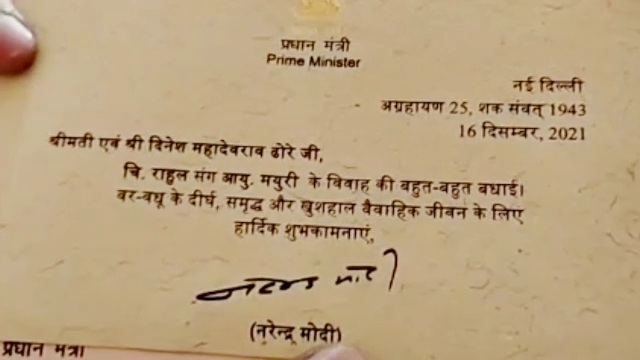 प्रधान मंत्री
Prime Minister
नई दिल्ली
अग्रहायण 25, शक संवत् 1943
16 दिसम्बर, 2021
श्रीमती एवं श्री दिनेश महादेवराव ढोरे जी,
चि. राहुल संग आयु. मयुरी के विवाह की बहुत-बहुत बधाई।
वर-वधू के दीर्घ, समृद्ध और खुशहाल वैवाहिक जीवन के लिए
हार्दिक शुभकामनाएं,
नरेन्द्र मोदी
(नरेन्द्र मोदी)
प्रधान मंत्री